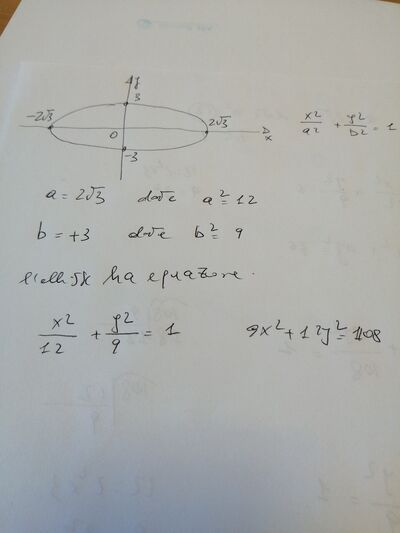 y
3
-2√3
0
2√3
x
-3
x²/a² + y²/b² = 1
a = 2√3 dove a² = 12
b = +3 dove b² = 9
l'ellisse ha equazione.
x²/12 + y²/9 = 1
9x² + 12y² = 108